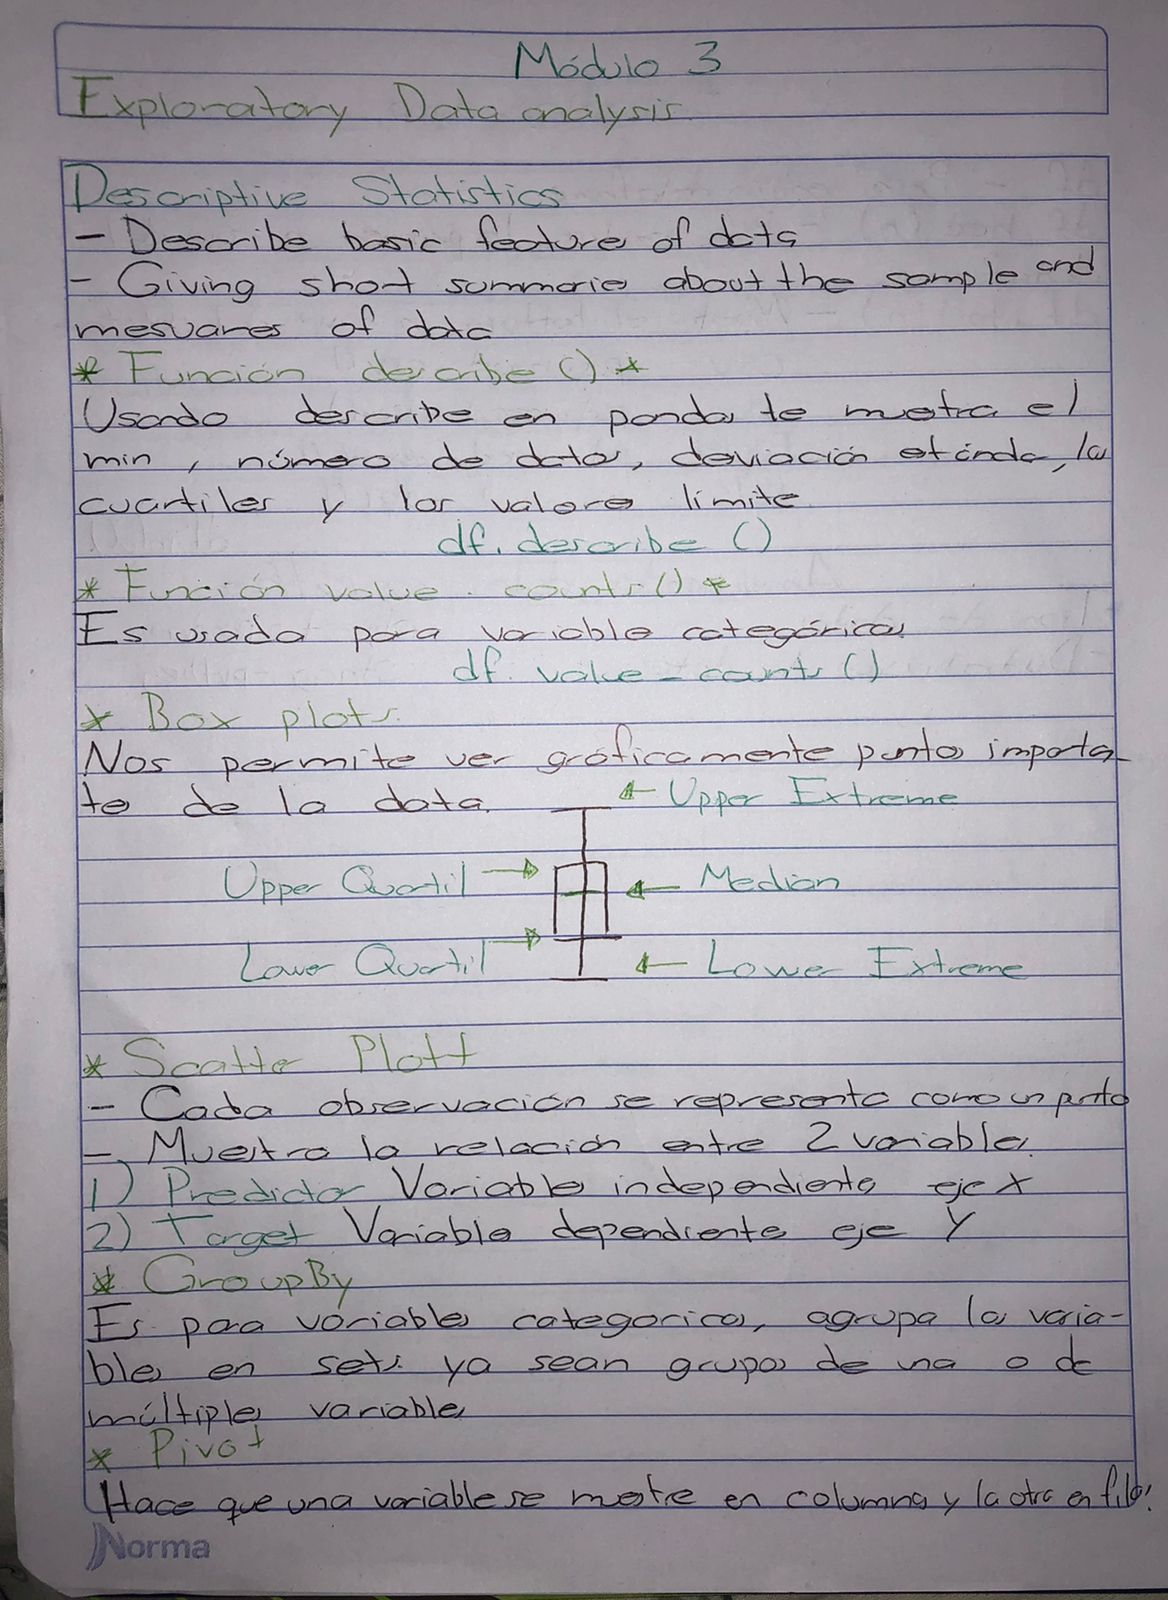 Módulo 3
Exploratory Data analysis
Descriptive Statistics
- Describe basic feature of data
- Giving short summaries about the sample and
mesuares of data
* Función describe () *
Usando describe en pandas te muestra el
min, número de datos, desviación estándar, los
cuartiles y los valores límite
df. describe ()
* Función value - counts () *
Es usada para variables categóricas
df. value - counts ()
* Box plots
Nos permite ver gráficamente puntos importa-
te de la data
← Upper Extreme
Upper Quartil →
← Median
Lower Quartil →
← Lower Extreme
* Scatter Plott
- Cada observación se representa como un punto
- Muestra la relación entre 2 variables
1) Predictor Variables independiente eje X
2) Target Variable dependiente eje Y
* GroupBy
Es para variables categoricas, agrupa las varia-
bles en sets ya sean grupos de una o de
múltiples variables
* Pivot
Hace que una variable se mostre en columnas y la otra en filas
Norma